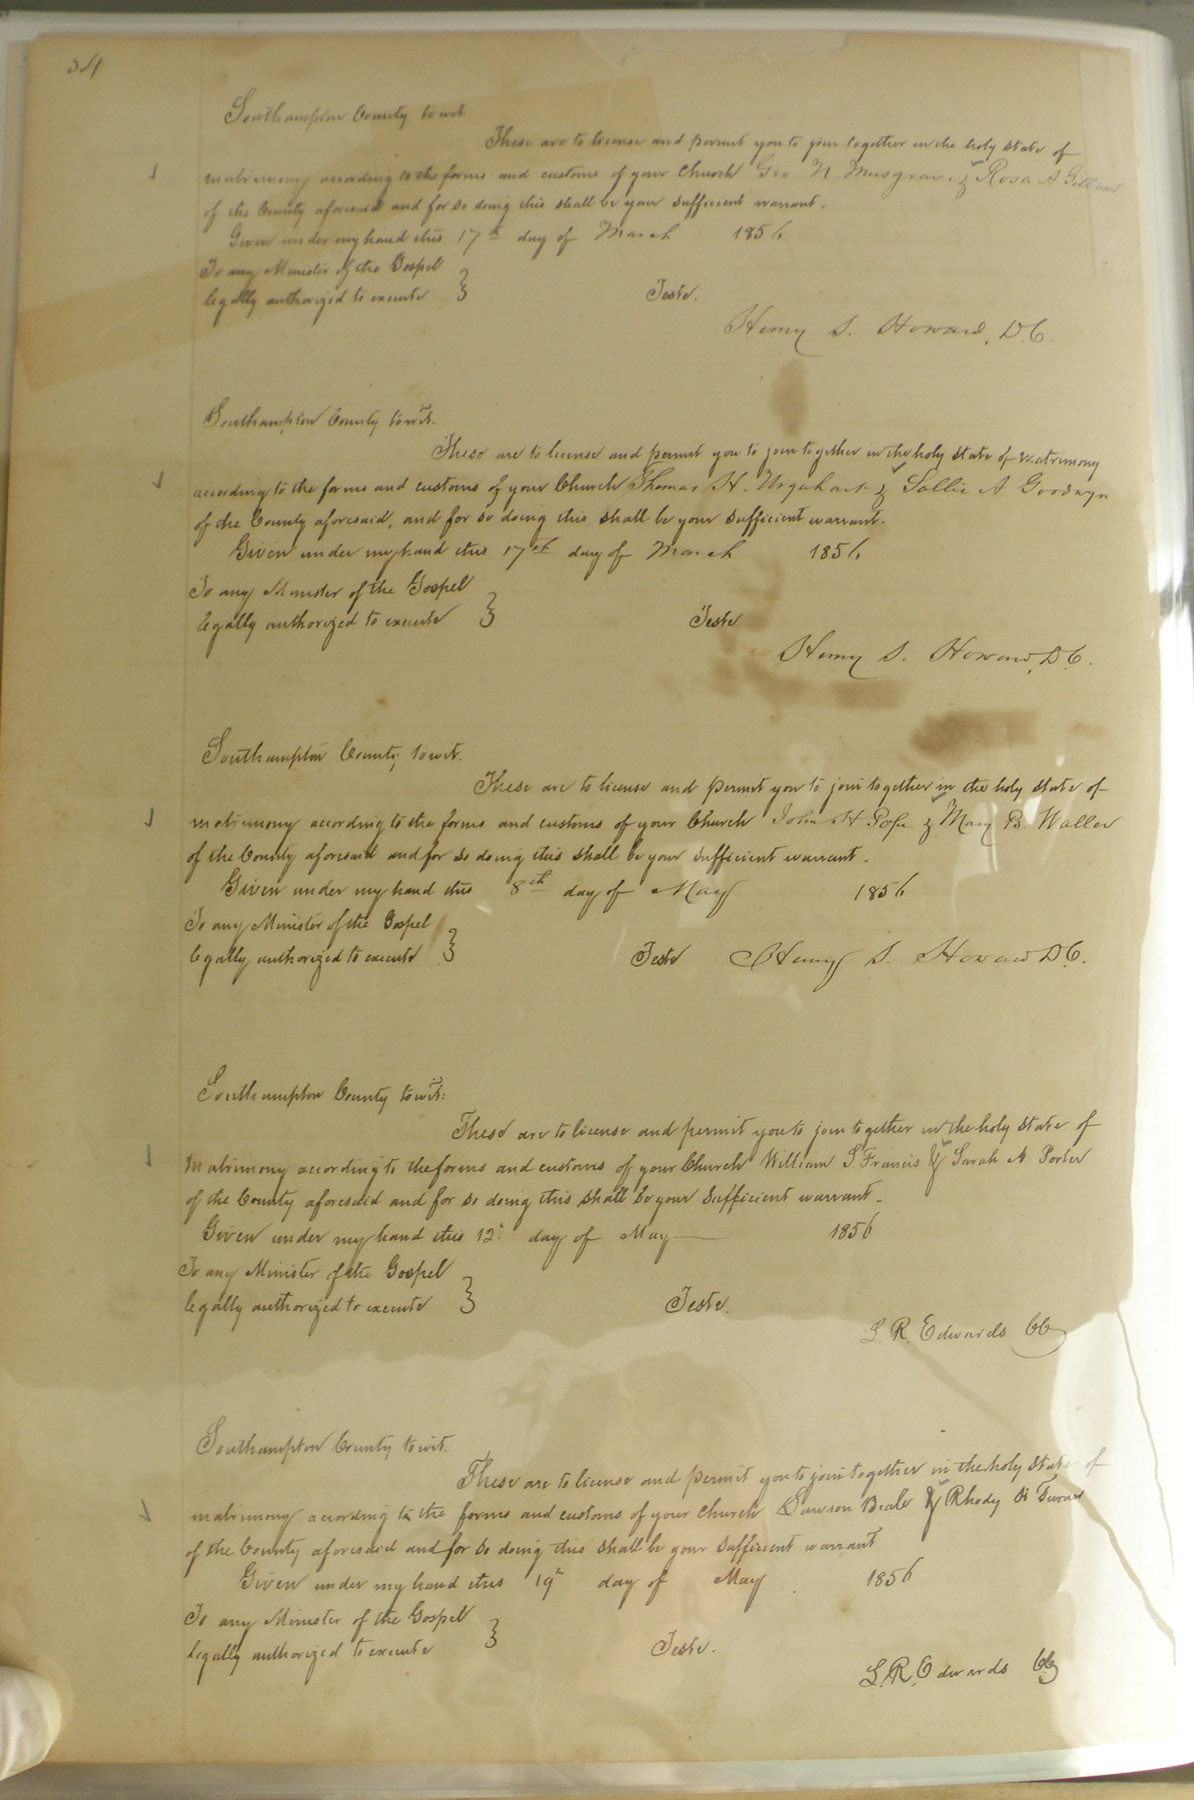 34
Southampton County to wit
These are to license and permit you to join together in the holy state of
matrimony according to the forms and customs of your Church Geo N. Musgrave & Rosa A
of the County aforesaid and for so doing this shall be your sufficient warrant.
Given under my hand this 17th day of March 1856
To any Minister of the Gospel
legally authorized to execute } Teste.
Henry S. Howard, D.C.
Southampton County to wit.
These are to license and permit you to join together in the holy state of matrimony
according to the forms and customs of your Church Thomas H. Urquhart & Sallie A Goodwyn
of the County aforesaid, and for so doing this shall be your sufficient warrant.
Given under my hand this 17th day of March 1856
To any Minister of the Gospel
legally authorized to execute } Teste
Henry S. Howard, D.C.
Southampton County, to wit.
These are to license and permit you to join together in the holy state of
matrimony according to the forms and customs of your Church John H Pope & Mary B. Waller
of the County aforesaid and for so doing this shall be your sufficient warrant.
Given under my hand this 8th day of May 1856
To any Minister of the Gospel
legally authorized to execute } Teste Henry S. Howard D.C.
Southampton County to wit:
These are to license and permit you to join together in the holy state of
Matrimony according to the forms and customs of your Church William S Francis & Sarah A Porter
of the County aforesaid and for so doing this shall be your sufficient warrant.
Given under my hand this 12th day of May 1856
To any Minister of the Gospel
legally authorized to execute } Teste.
L. R. Edwards CC
Southampton County to wit.
These are to license and permit you to join together in the holy state of
matrimony according to the forms and customs of your Church Lawson Beale & Rhody Turner
of the County aforesaid and for so doing this shall be your sufficient warrant
Given under my hand this 19th day of May 1856
To any Minister of the Gospel
legally authorized to execute } Teste.
L. R. Edwards CC